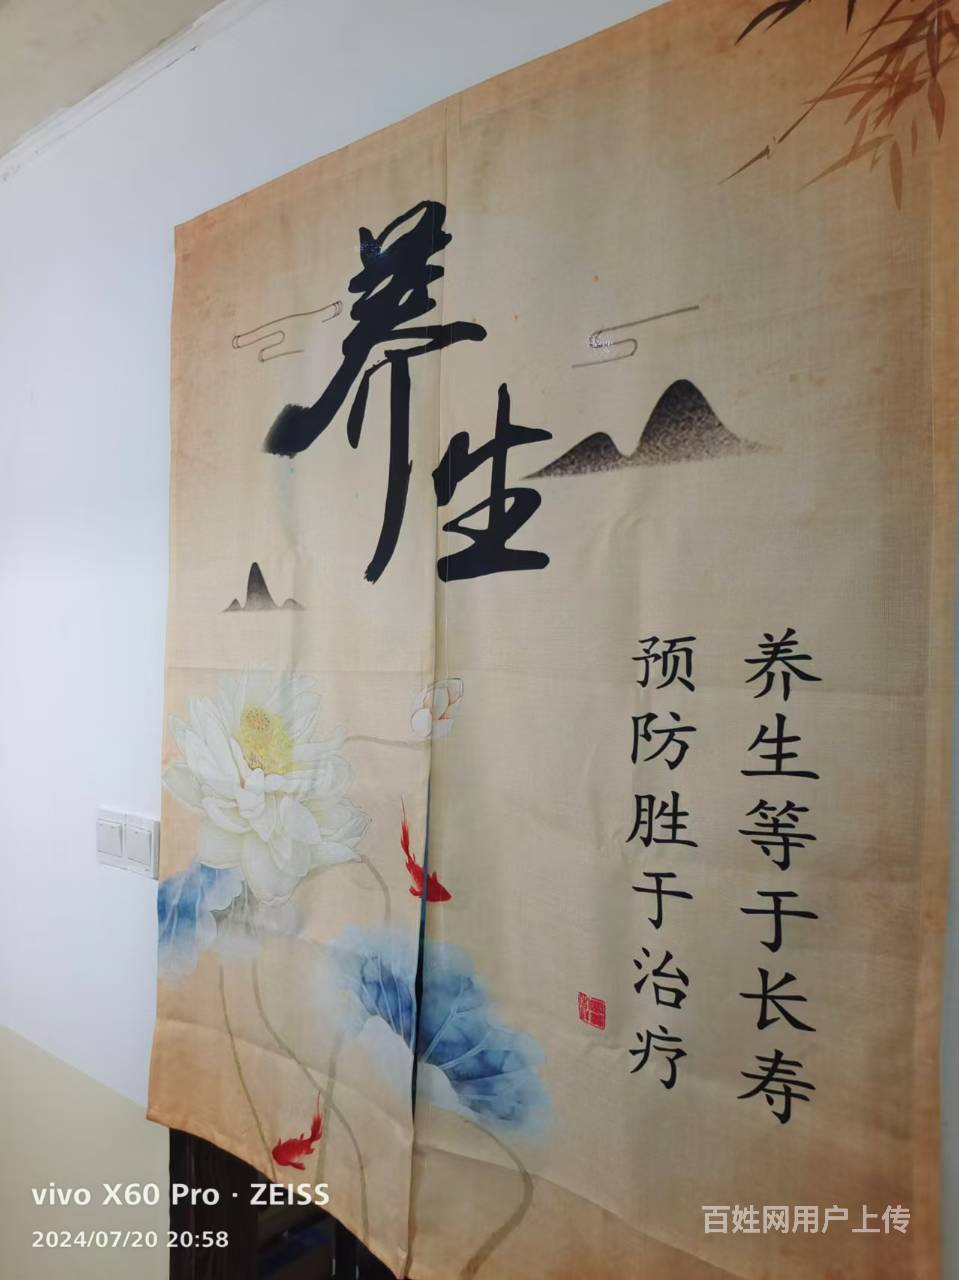 养生
养生等于长寿
预防胜于治疗
vivo X60 Pro · ZEISS
2024/07/20 20:58
百姓网用户上传